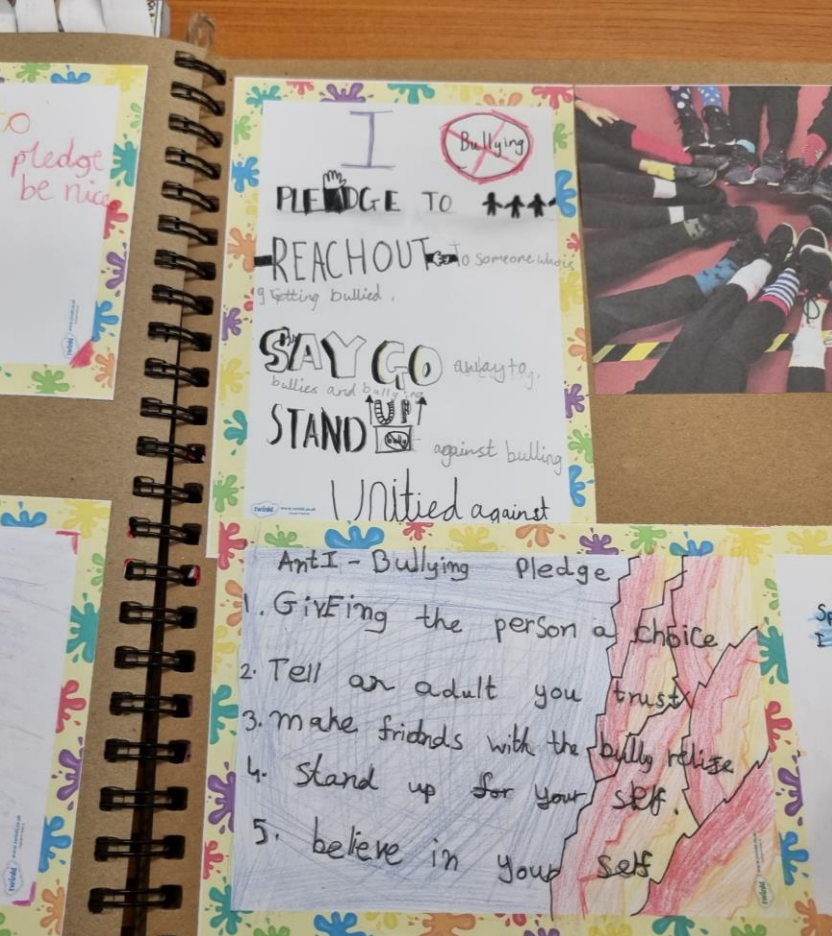 to
pledge
be nice
I
Bullying
PLEDGE TO
REACHOUT to someone who is
getting bullied.
SAY GO away to
bullies and bullying
STAND UP against bulling
bully
Unitied against
twinkl www.twinkl.co.uk
AntI-Bullying pledge
1. GivEing the person a choice
2. Tell an adult you trust
3. make friends with the bully relise
4. Stand up for your self.
5. believe in your self
twinkl